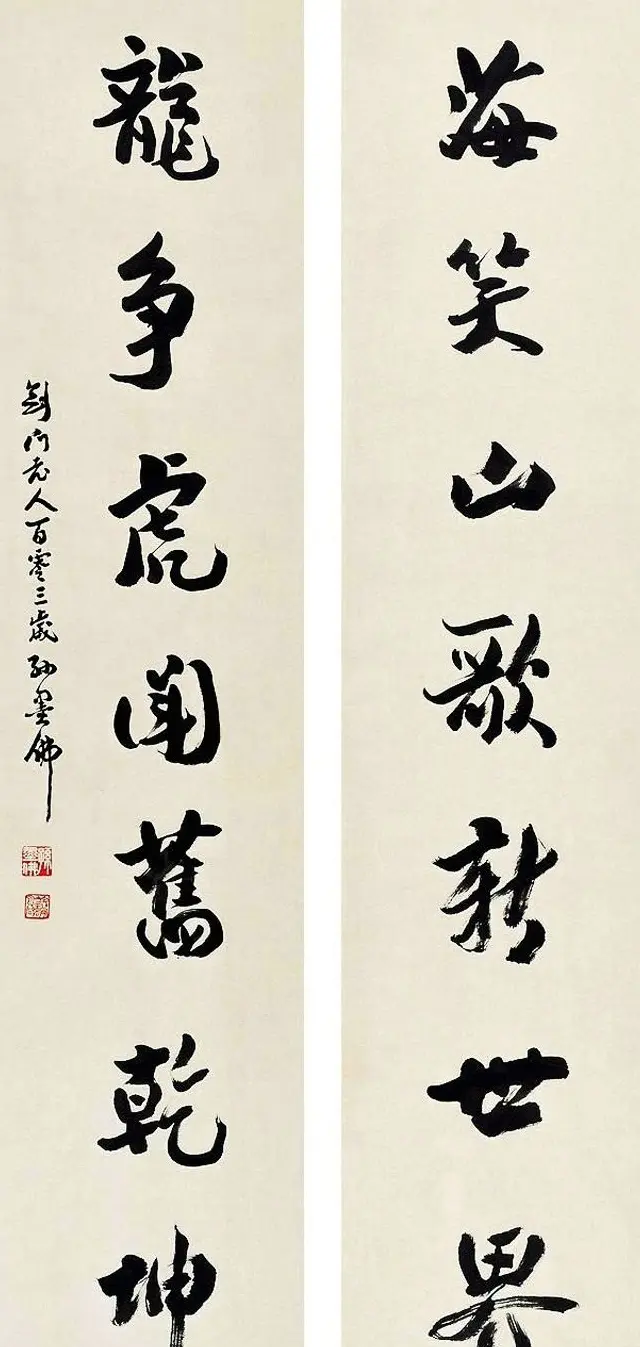 海笑山歌新世界
龍争虎鬥舊乾坤
劍門老人百零三歲孫墨佛